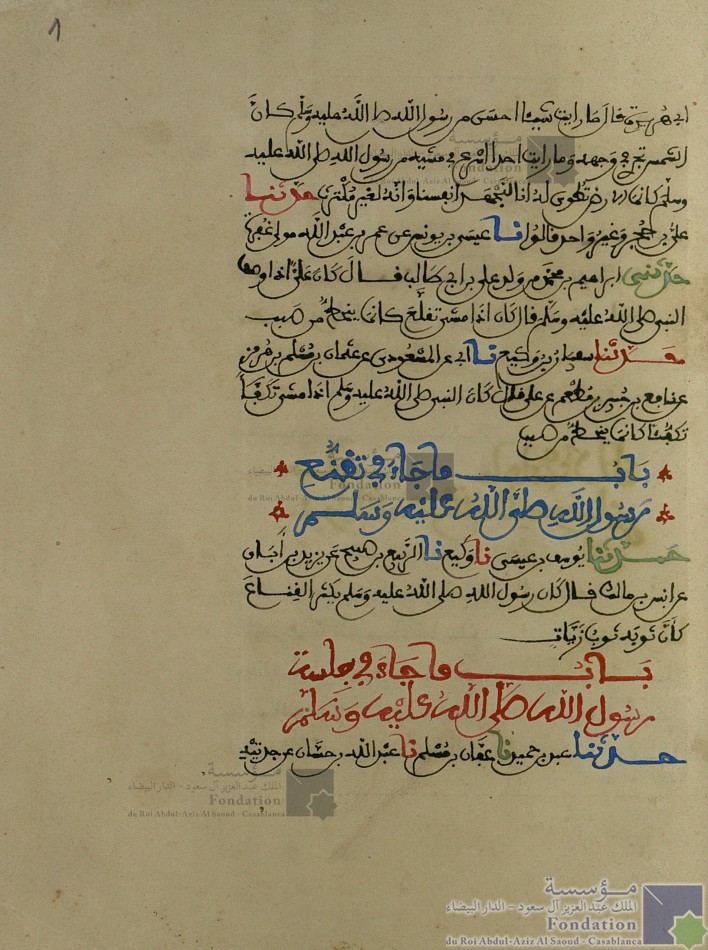 1
ابي هريرة قال ما رايت شيئا احسن من رسول الله صلى الله عليه وسلم كان
الشمس تجري في وجهه وما رايت احدا اسرع في مشيه من رسول الله صلى الله عليه
وسلم كانما الارض تطوى له انا لنجهد انفسنا وانه لغير مكترث حدثنا
علي بن حجر وغير واحد قالوا نا عيسى بن يونس عن عمر بن عبد الله مولى غفرة
حدثني ابراهيم بن محمد من ولد علي بن ابي طالب قال كان علي اذا وصف
النبي صلى الله عليه وسلم قال كان اذا مشى تقلع كانما ينحط من صبب
حدثنا سفيان بن وكيع نا ابي عن المسعودي عن عثمان بن مسلم بن هرمز
عن نافع بن جبير بن مطعم عن علي قال كان النبي صلى الله عليه وسلم اذا مشى تكفا
تكفئا كانما ينحط من صبب
باب ما جاء في تقنع
رسول الله صلى الله عليه وسلم
حدثنا يوسف بن عيسى نا وكيع نا الربيع بن صبيح عن يزيد بن ابان
عن انس بن مالك قال كان رسول الله صلى الله عليه وسلم يكثر القناع
كأن ثوبه ثوب زيات
باب ما جاء في جلسة
رسول الله صلى الله عليه وسلم
حدثنا عبد بن حميد نا عفان بن مسلم نا عبد الله بن حسان عن جدتيه
مؤسسة
الملك عبد العزيز آل سعود - الدار البيضاء
Fondation
du Roi Abdul-Aziz Al Saoud - Casablanca
مؤسسة
الملك عبد العزيز آل سعود - الدار البيضاء
Fondation
du Roi Abdul-Aziz Al Saoud - Casablanca